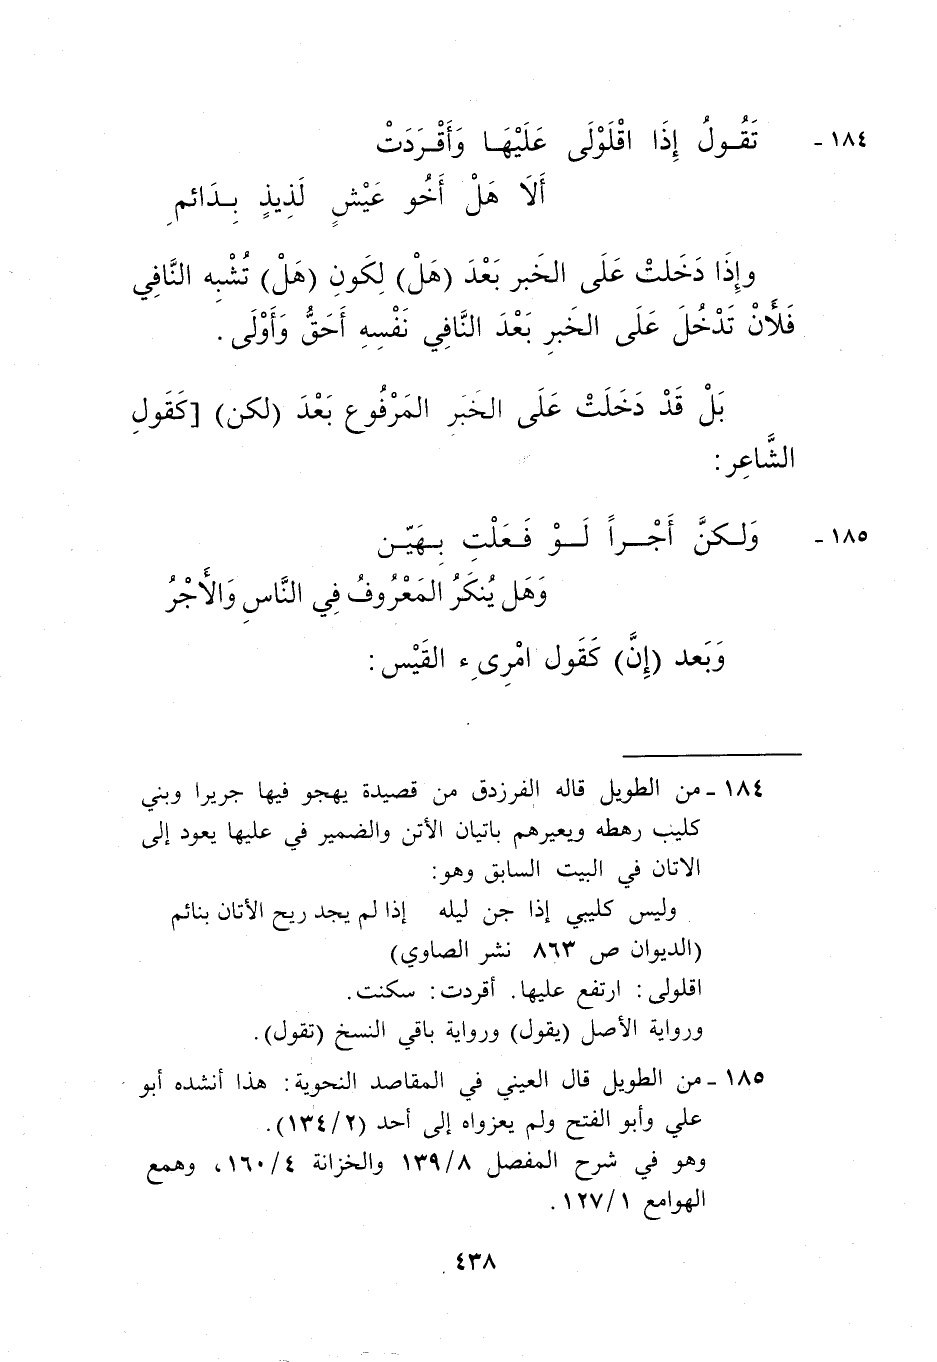 ١٨٤ - تَقُـولُ إِذَا اقْلَوْلَى عَلَيْهَـا وَأَقْـرَدَتْ
أَلَا هَلْ أَخُو عَيْشٍ لَذِيذٍ بِـدَائمِ
وإِذَا دَخَلتْ عَلَى الخَبرِ بَعْدَ (هَلْ) لِكَونِ (هَلْ) تُشْبِه النَّافِي
فَلَأَنْ تَدْخُلَ عَلَى الخَبرِ بَعْدَ النَّافِي نَفْسِهِ أَحَقُّ وَأَوْلَى .
بَلْ قَدْ دَخَلَتْ عَلَى الخَبَرِ المَرْفُوعِ بَعْدَ (لكن) [كَقَولِ
الشَّاعِرِ :
١٨٥ - وَلـكنَّ أَجْـــراً لَــوْ فَـعَلْتِ بِـهَيّـن
وَهَل يُنكَرُ المَعْرُوفُ فِي النَّاسِ وَالأَجْرُ
وَبَعد (إِنَّ) كَقَول امْرِىءِ القَيْس :
١٨٤ - من الطويل قاله الفرزدق من قصيدة يهجو فيها جريرا وبني
كليب رهطه ويعيرهم باتيان الأتن والضمير في عليها يعود إلى
الاتان في البيت السابق وهو:
وليس كليبي إذا جن ليله إذا لم يجد ريح الأتان بنائم
(الديوان ص ٨٦٣ نشر الصاوي)
اقلولى : ارتفع عليها. أقردت : سكنت.
ورواية الأصل (يقول) ورواية باقي النسخ (تقول).
١٨٥ - من الطويل قال العيني في المقاصد النحوية: هذا أنشده أبو
علي وأبو الفتح ولم يعزواه إلى أحد (١٣٤/٢).
وهو في شرح المفصل ١٣٩/٨ والخزانة ١٦٠/٤، وهمع
الهوامع ١٢٧/١ .
٤٣٨